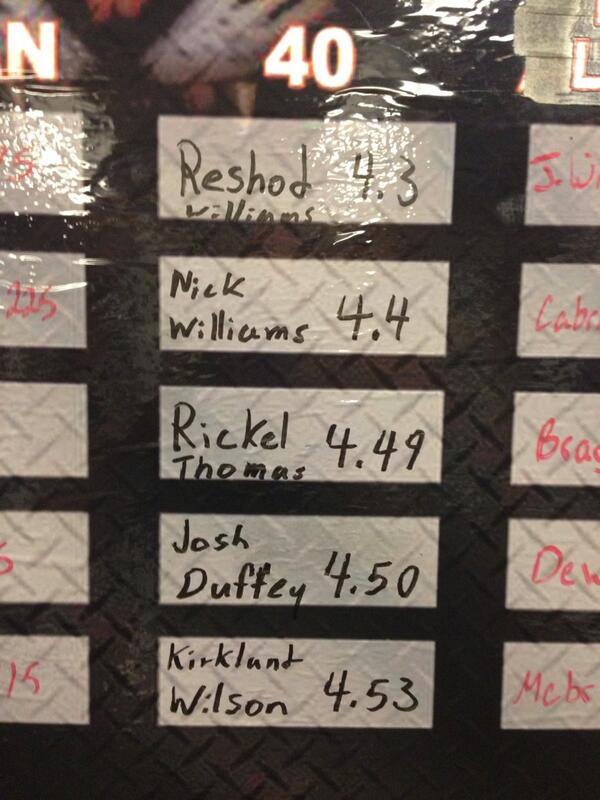 N
40
Reshod 4.3
Williams
J. Wi
225
Nick
Williams 4.4
Cabr
Rickel 4.49
Thomas
Brag
Josh
Duffey 4.50
Dew
15
Kirkland
Wilson 4.53
Mcbr